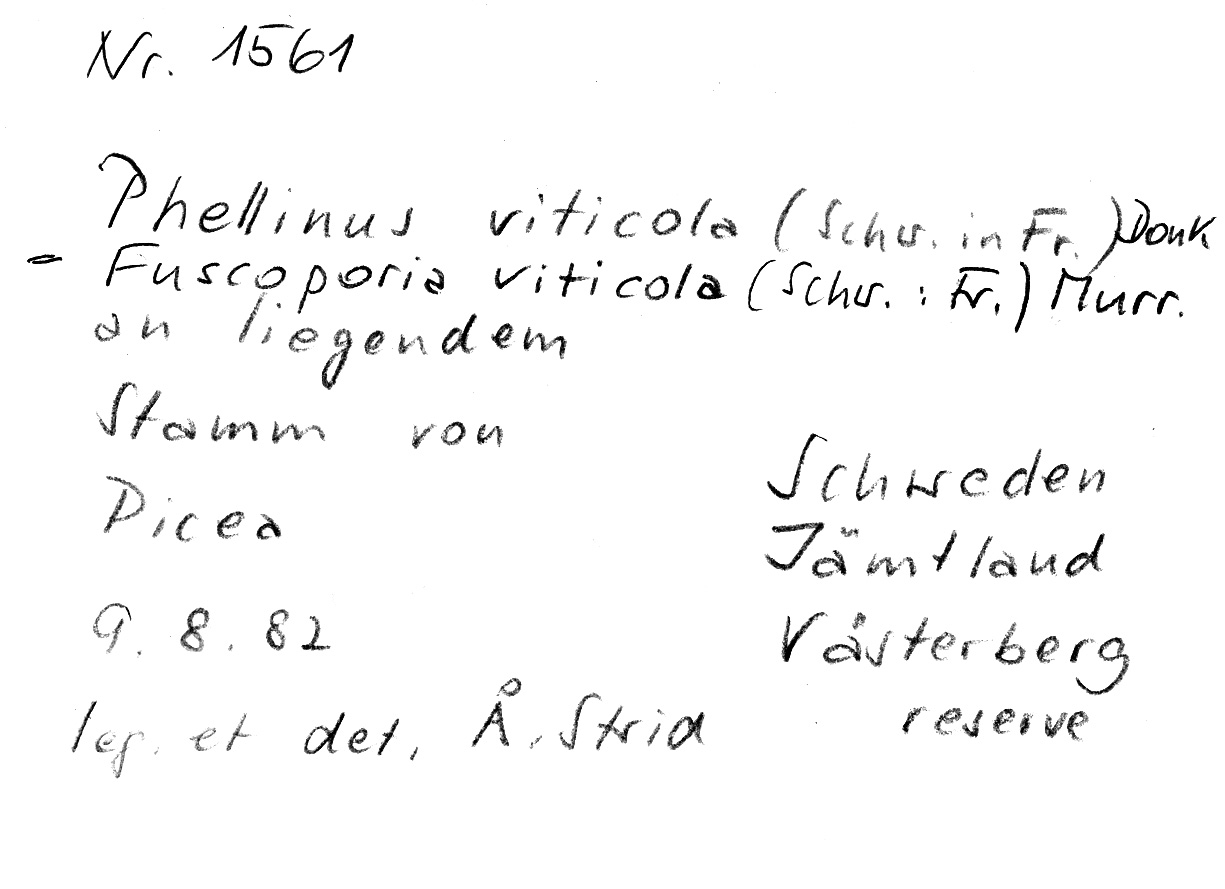 Nr. 1561
Phellinus viticola (Schw. in Fr.) Donk
- Fuscoporia viticola (Schw. : Fr.) Murr.
an liegendem
Stamm von
Picea
Schweden
Jämtland
9. 8. 82
Våsterberg
reserve
leg. et det. Å. Strid